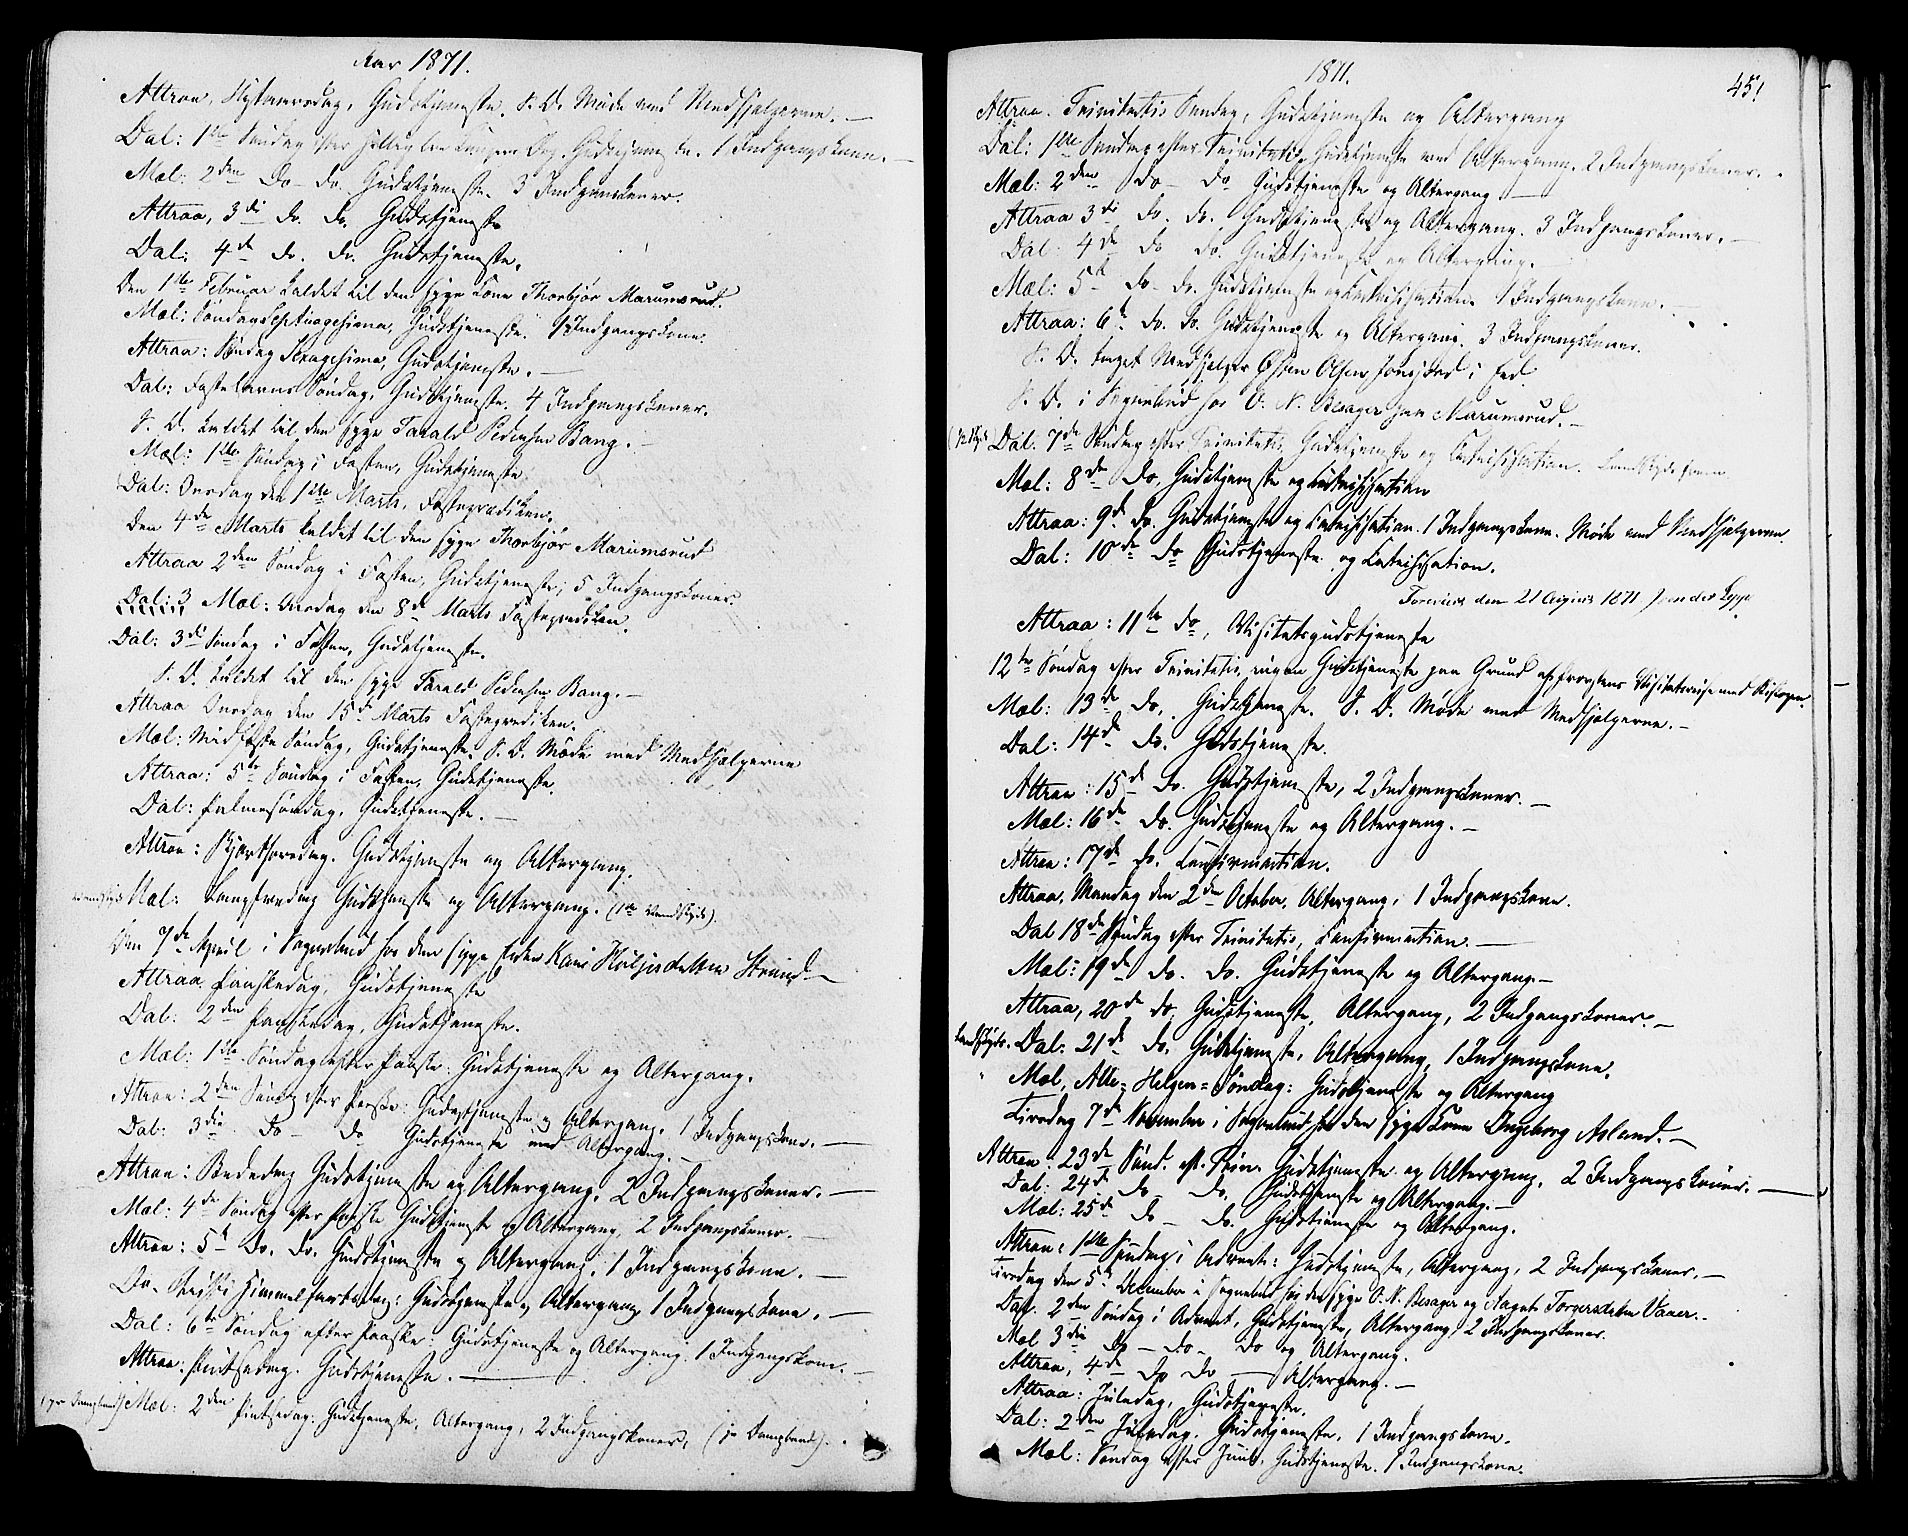 Aar 1871.
Attraa, Nytaarsdag, Gudstjeneste. S. D. Møde med Medhjælperne. —
Dal: 1ste Søndag efter Hellig tre Kongers Dag. Gudstjeneste. 1 Indgangskone. —
Mæl: 2den Do – do Gudstjeneste. 3 Indgangskoner.
Attraa, 3die do. do. Gudstjeneste
Dal: 4de do. do. Gudstjeneste.
Den 1ste Februar kaldet til den syge Kone Thorbjør Marumsrud.
Mæl: Søndag Septuagesima, Gudstjeneste. 1 Indgangskone.
Attraa: Søndag Sexagesima, Gudstjeneste. —
Dal: Fastelavns Søndag, Gudstjeneste. 4 Indgangskoner.
S. D. kaldet til den syge Tarald Pedersen Bang. —
Mæl: 1ste Søndag i Fasten, Gudstjeneste
Dal: Onsdag den 1ste Marts, Fasteprædiken.
Den 4de Marts kaldet til den syge Thorbjør Marumsrud
Attraa 2den Søndag i Fasten, Gudstjeneste; 5 Indgangskoner.
Dal: 3 Mæl: Onsdag den 8de Marts Fasteprediken.
Dal: 3die Søndag i Fasten, Gudstjeneste.
S. D. kaldet til den syge Tarald Pedersen Bang. —
Attraa Onsdag den 15de Marts Fasteprediken.
Mæl: Midfaste Søndag, Gudstjeneste. S. D. Møde med Medhjælperne
Attraa: 5te Søndag i Fasten, Gudstjeneste.
Dal: Palmesøndag, Gudstjeneste. —
Attraa: Skjærthorsdag. Gudstjeneste og Altergang.
Mæl: Langfredag Gudstjeneste og Altergang.
Den 7de April i Sognebud hos den syge Kari Strand —
Attraa, Paaskedag, Gudstjeneste
Dal: 2den Paaskedag, Gudstjeneste.
Mæl: 1ste Søndag efter Paaske: Gudstjeneste og Altergang.
Attraa: 2den Søndag efter Paaske: Gudestjeneste og Altergang, 1 Indgangskone. —
Dal: 3die Do – do Gudstjeneste med Altergang. —
Attraa: Bededag Gudstjeneste og Altergang. 2 Indgangskoner. —
Mæl: 4de Søndag efter Paaske Gudstjeneste og Altergang, 2 Indgangskoner. —
Attraa: 5te Do. do. Gudstjeneste og Altergang. 1 Indgangskone. —
Do. Christi Himmelfartsdag: Gudstjeneste og Altergang 1 Indgangskone. —
Dal: 6te Søndag efter Paaske: Gudstjeneste og Altergang. 1 Indgangskone. —
Attraa: Pintsedag. Gudstjeneste. —
Mæl: 2den Pintsedag: Gudstjeneste, Altergang, 2 Indgangskoner,
1871.
451
Attraa. Trinitatis Søndag, Gudstjeneste og Altergang
Dal: 1ste Søndag efter Trinitatis Gudstjeneste med Altergang. 2 Indgangskoner. –
Mæl: 2den Do – Do Gudstjeneste og Altergang —
Attraa 3die do. do. Gudstjeneste og Altergang. 3 Indgangskoner. —
Dal: 4de do do. Gudstjeneste og Altergang. —
Mæl: 5te do – do. Gudstjeneste og Katechisation. 1 Indgangskone. —
Attraa: 6te do. do. Gudstjeneste og Altergang. 3 Indgangskoner.
S. D. taget Medhjælper Østen Olsen i Ed.
S. D. i Sognebud hos O. N. Besager paa Marumsrud. —
Dal: 7de Søndag efter Trinitatis, Gudstjeneste og Katechisation.
Mæl: 8de Do, Gudstjeneste og Katechisation
Attraa: 9de do. Gudstjeneste og Katechisation. 1 Indgangskone. Møde med Medhjælperne.
Dal: 10de do Gudstjeneste og Katechisation.
den 21 August 1871
Attraa: 11te do, Visitatsgudstjeneste
12te Søndag efter Trinitatis, ingen Gudstjeneste paa Grund af Visitatsreise med Biskopen.
Mæl: 13de do, Gudstjeneste. S. D. Møde med Medhjælperne. —
Dal: 14de do. Gudstjeneste.
Attraa: 15de do. Gudstjeneste, 2 Indgangskoner. —
Mæl: 16de do. Gudstjeneste og Altergang. —
Attraa: 17de do. Confirmation.
Attraa, Mandag den 2den October, Altergang, 1 Indgangskone.
Dal 18de Søndag efter Trinitatis, Confirmation. —
Mæl: 19de do. do. Gudstjeneste og Altergang. —
Attraa, 20de do, Gudstjeneste, Altergang, 2 Indgangskoner. —
Dal: 21de do. Gudstjeneste, Altergang, 1 Indgangskone.
Mæl, Alle-Helgen-Søndag: Gudstjeneste og Altergang
Tirsdag 7de November i Sognebud hos den syge Kone Ingeborg Asland. —
Attraa: 23de Sønd. eft. Trin. Gudstjeneste og Altergang. 2 Indgangskoner. —
Dal: 24de do do. Gudstjeneste og Altergang. —
Mæl: 25de do – do. Gudstjeneste og Altergang.
Attraa: 1ste Søndag i Advent: Gudstjeneste, Altergang, 2 Indgangskoner. —
Tirsdag den 5te December i Sognebud hos den syge O. N. Besager og Aagot Torgersdatter Vaaer.
Dal: 2den Søndag i Advent, Gudstjeneste, Altergang, 2 Indgangskoner.
Mæl 3die Do – Do – Do og Altergang.
Attraa, 4de Do Do — Altergang. —
Attraa: Juledag, Gudstjeneste.
Dal: 2den Juledag. Gudstjeneste, 1 Indgangskone.
Mæl: Søndag efter Juul, Gudstjeneste. 1 Indgangskone.